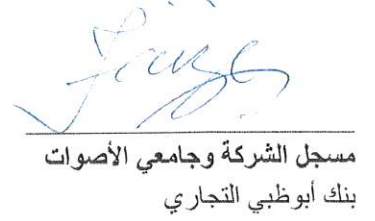 مسجل الشركة وجامعي الأصوات
بنك أبوظبي التجاري